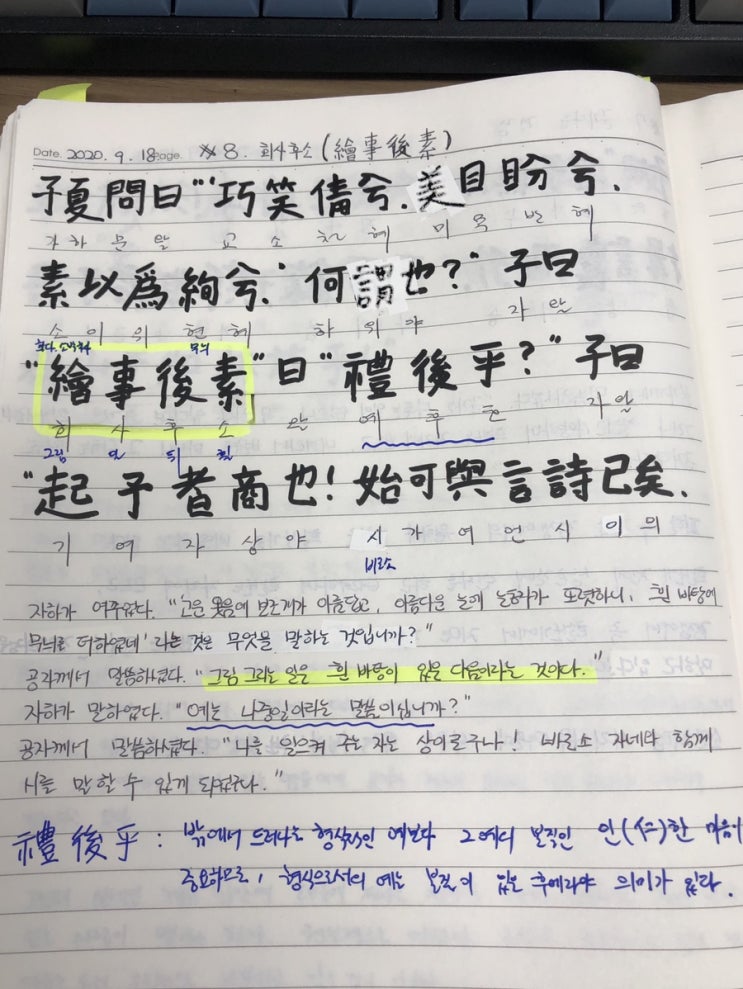 Date. 2020. 9. 18 page. ※8. 회사후소 (繪事後素)
子夏問曰 "'巧笑倩兮. 美目盼兮.
자하문왈 교소천혜 미목반혜
素以爲絢兮.' 何謂也?" 子曰
소이위현혜 하위야 자왈
무늬
"繪事後素" 曰 "禮後乎?" 子曰
회사후소 왈 예후호 자왈
그림 일 뒤 흴
"起予者商也! 始可與言詩已矣.
기여자상야 시가여언시이의
비로소
자하가 여쭈었다. "'고운 웃음에 보조개가 아름답고, 아름다운 눈에 눈동자가 또렷하니, 흰 바탕에
무늬를 더하였네' 라는 것은 무엇을 말하는 것입니까?"
공자께서 말씀하셨다. "그림 그리는 일은 흰 바탕이 있은 다음이라는 것이다."
자하가 말하였다. "예는 나중일이라는 말씀이십니까?"
공자께서 말씀하셨다. "나를 일으켜 주는 자는 상이로구나! 비로소 자네와 함께
시를 말할 수 있게 되었구나."
禮後乎 : 밖에서 드러나는 형식적인 예보다 그 예의 본질인 인(仁)한 마음이
중요하므로, 형식으로서의 예는 본질이 있은 후에라야 의미가 있다.